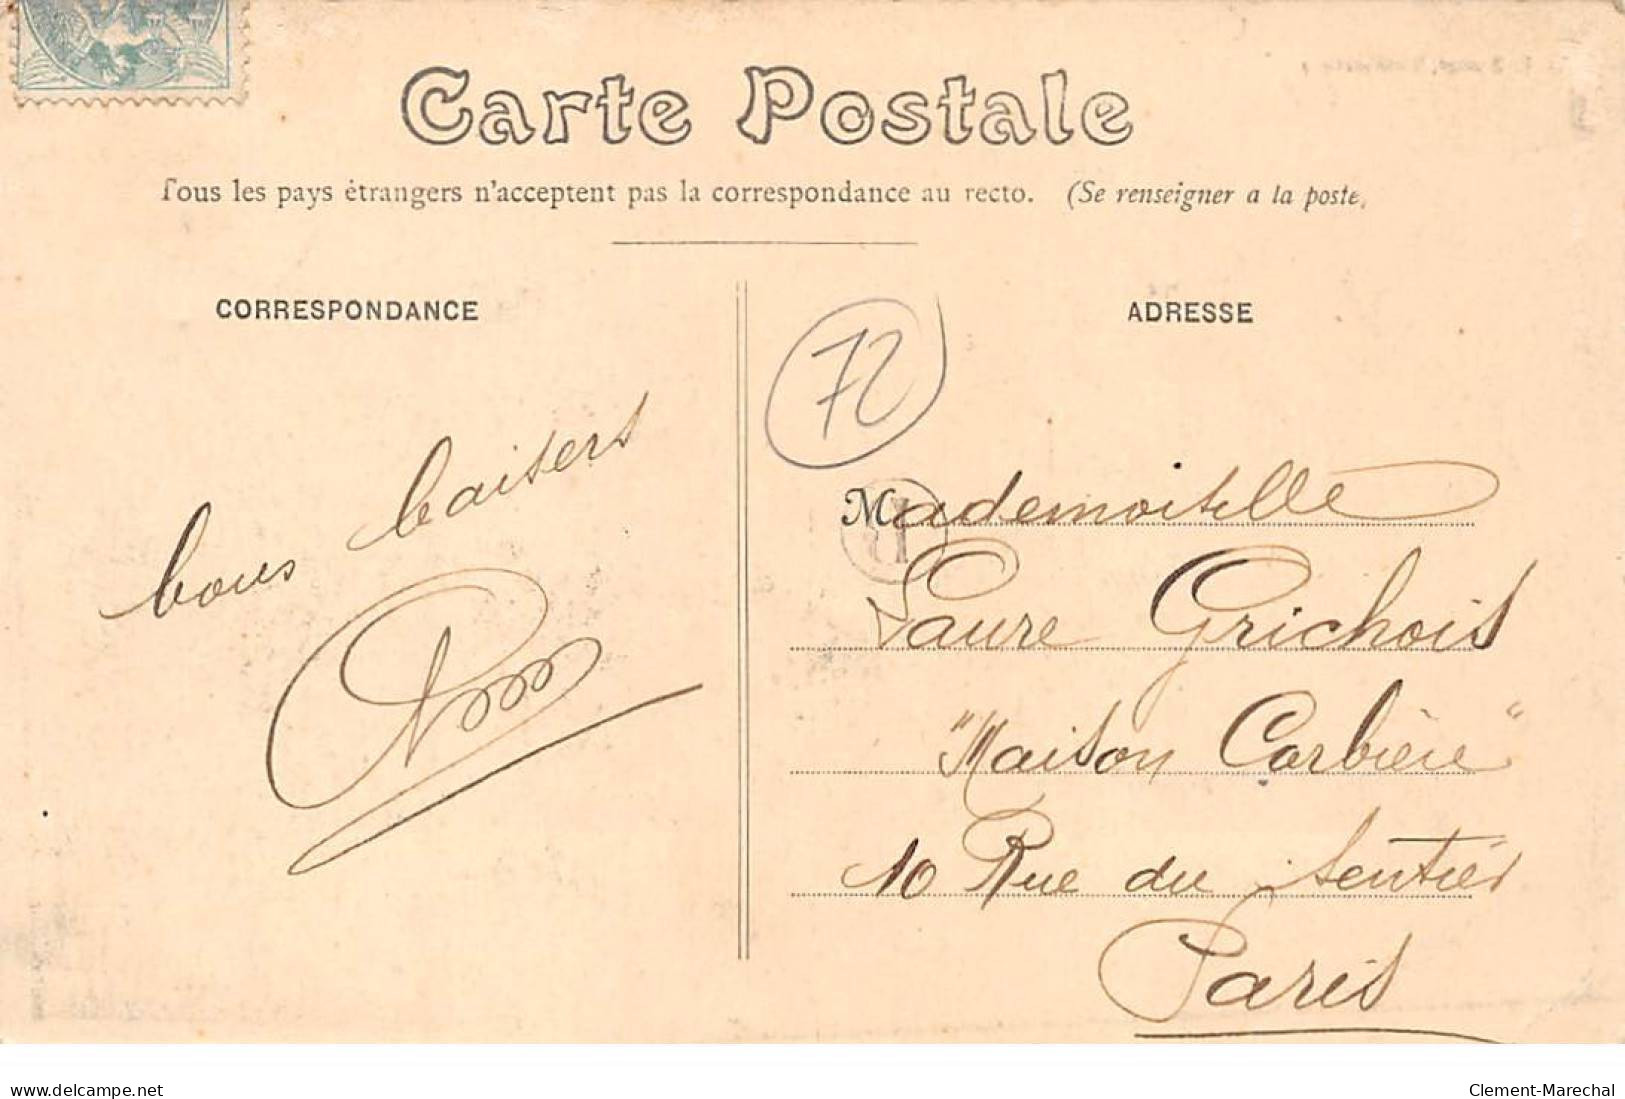 Carte Postale
Tous les pays étrangers n'acceptent pas la correspondance au recto. (Se renseigner a la poste,
CORRESPONDANCE
ADRESSE
72
bons baisers
Mademoiselle
Laure Grichois
"Maison Corbière"
10 Rue du Sentier
Paris
www.delcampe.net
Clement-Marechal